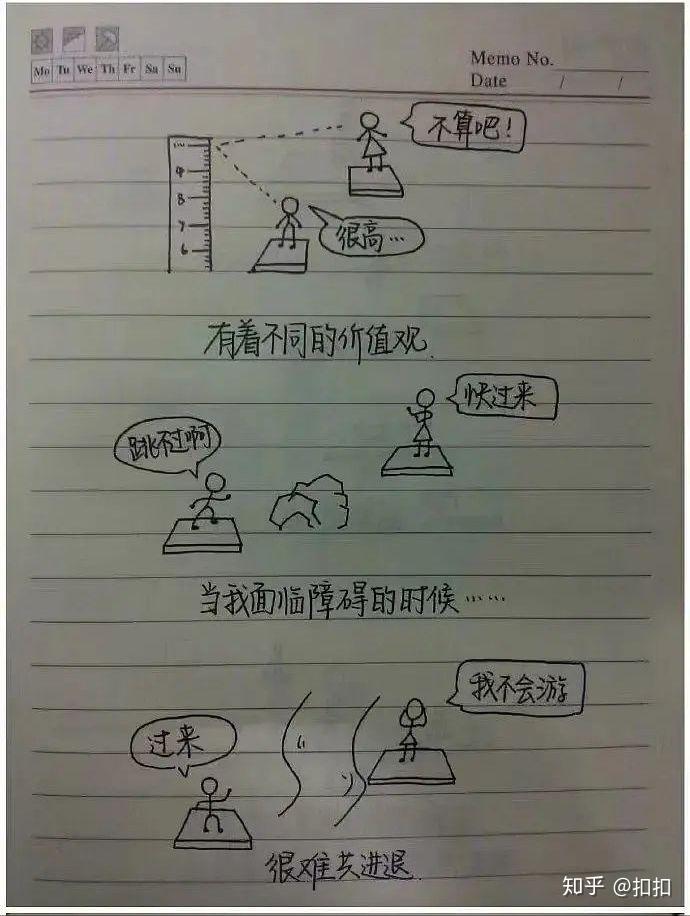 Mo Tu We Th Fr Sa Su
Memo No.
Date / /
不算吧!
9
8
7
6
很高…
有着不同的价值观.
快过来
跳不过啊
当我面临障碍的时候……
我不会游
过来
很难共进退.
知乎 @扣扣